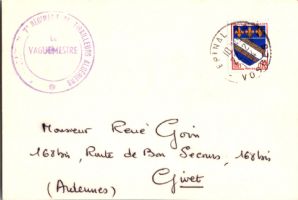 7e RÉGIMENT DE TIRAILLEURS ALGÉRIENS
LE
VAGUEMESTRE
EPINAL
VOSGES
Monsieur René Goin
168 bis, Route de Bon Secours, 168 bis
Givet
(Ardennes)